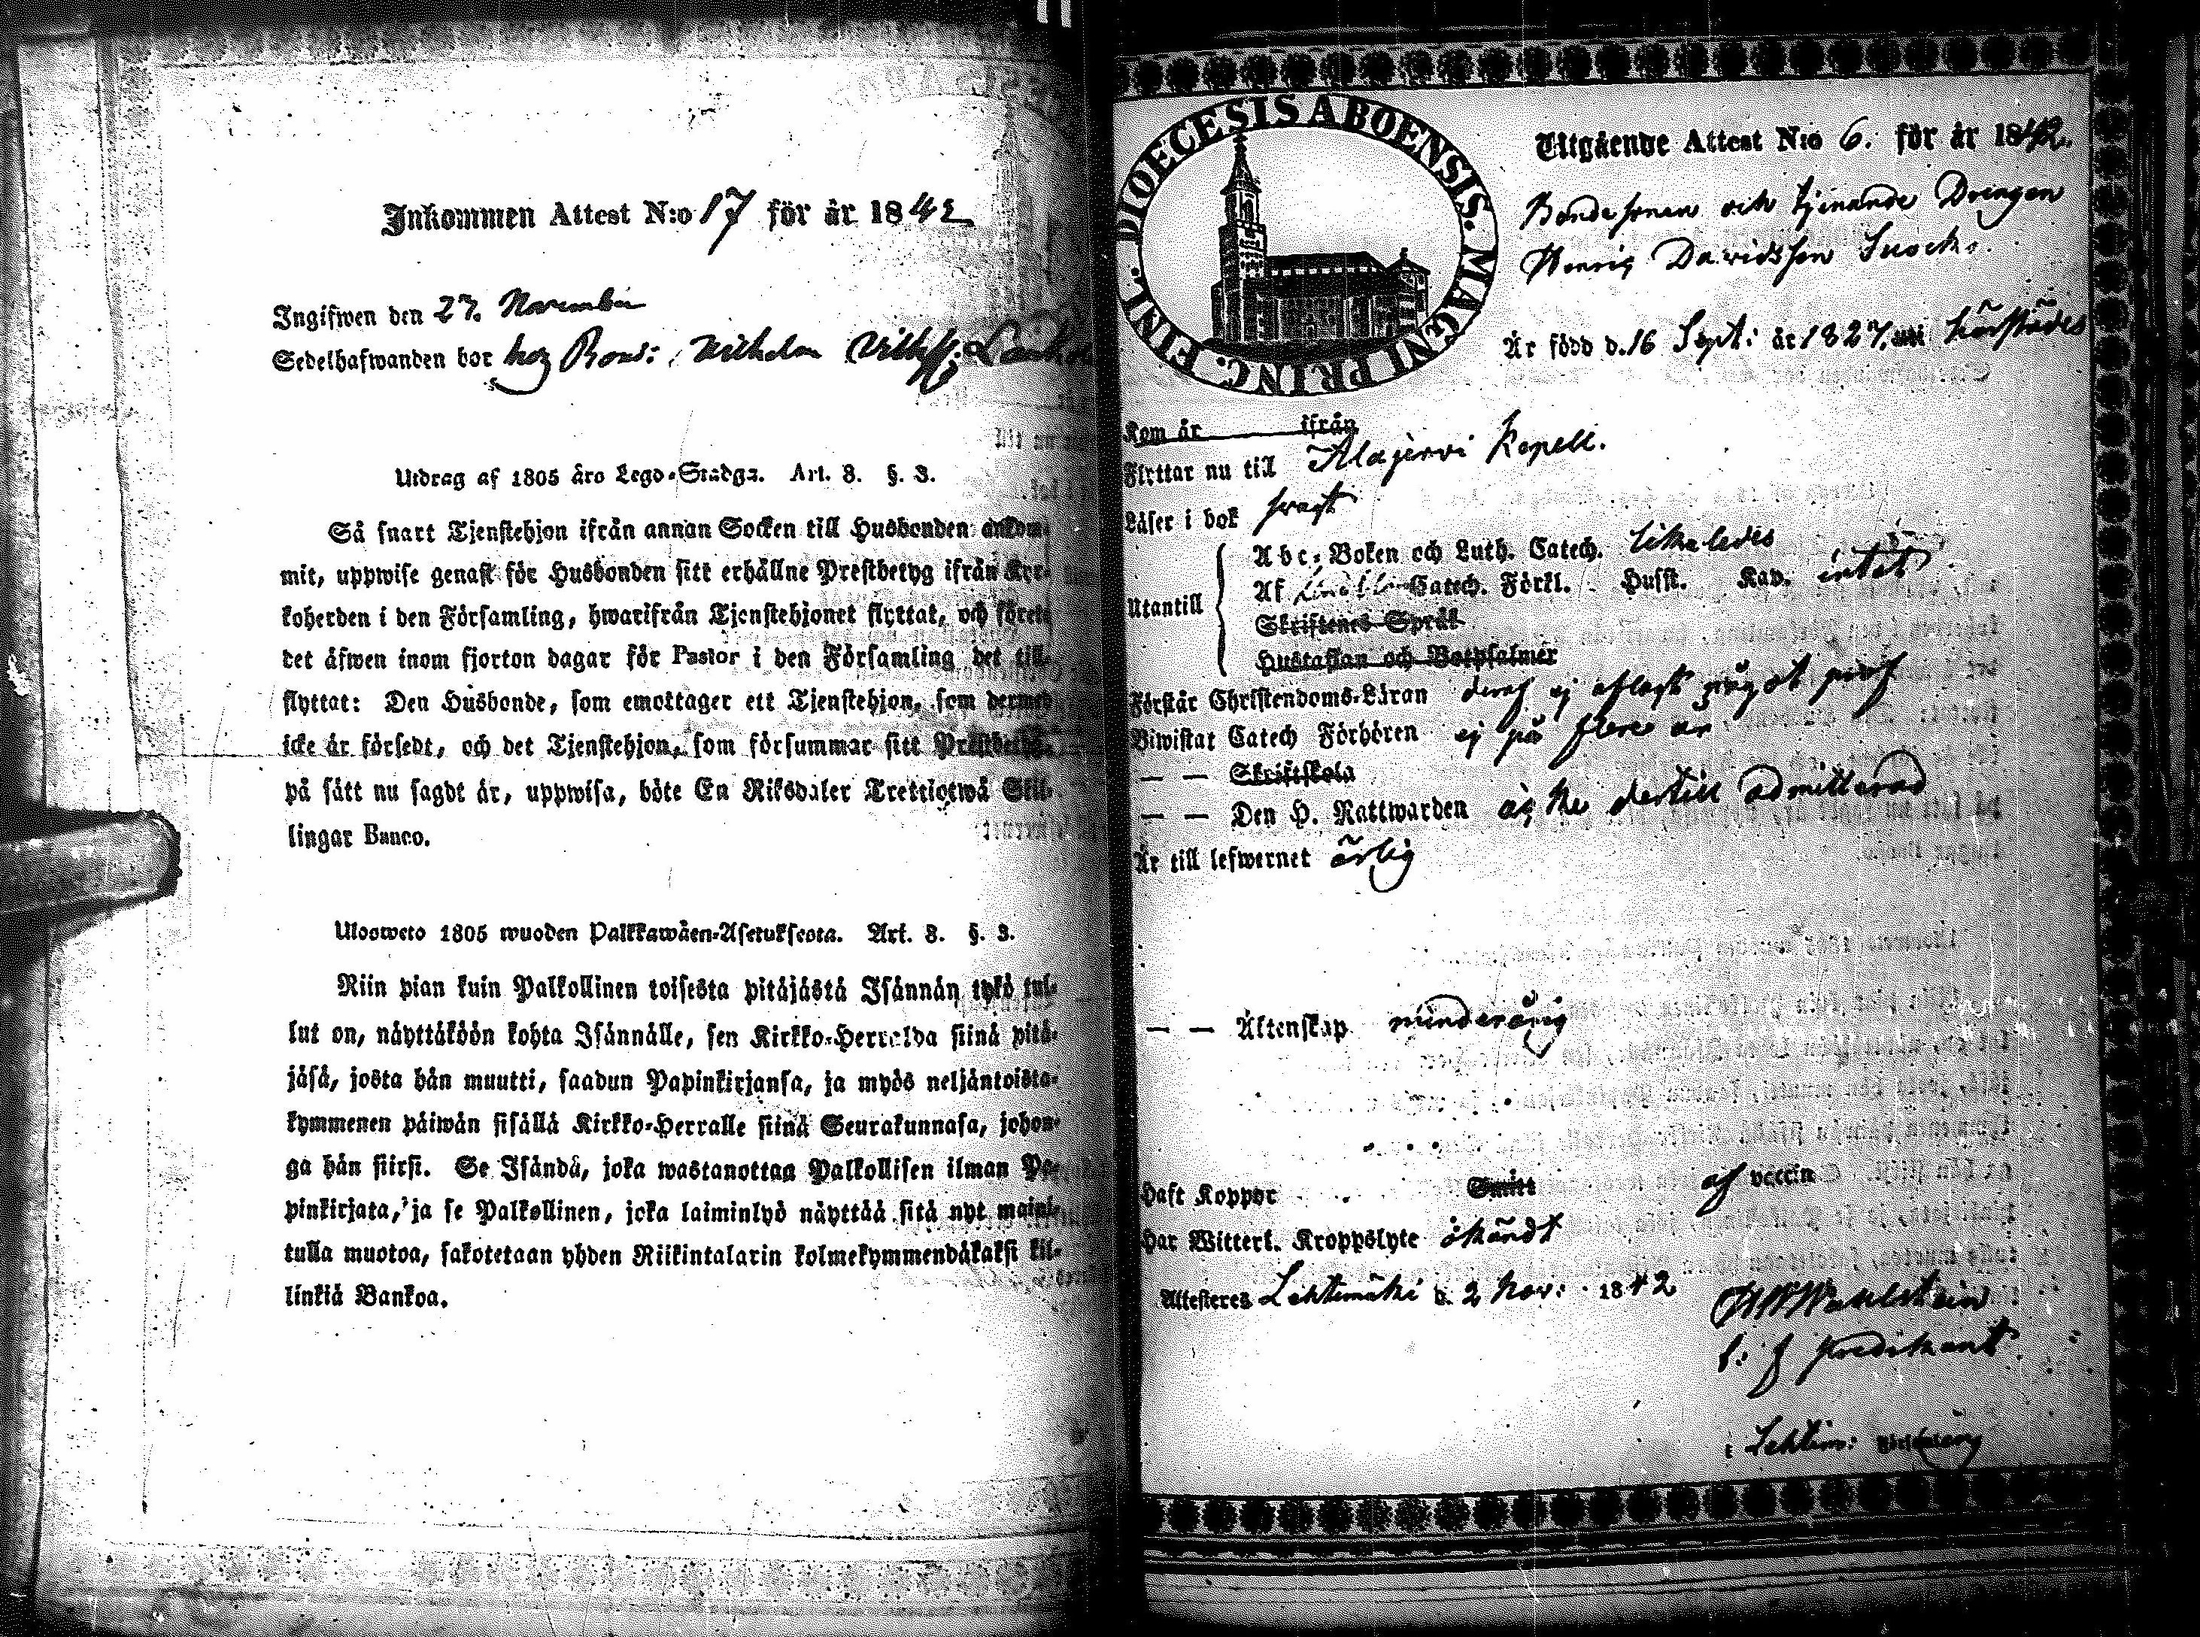 Inkommen Attest N:o 17 för år 1842
Ingifwen den 27. November
Sedelhafwanden bor hoz Bond: Wilhelm
Utdrag af 1805 års Lego-Stadga. Art. 8. §. 3.
Så snart Tjenstehjon ifrån annan Socken till Husbonden ankom-
mit, uppwise genast för Husbonden sitt erhållne Prestbetyg ifrån Kyr-
koherden i den Församling, hwarifrån Tjenstehjonet flyttat, och förete
det äfwen inom fjorton dagar för Pastor i den Församling det till-
flyttat: Den Husbonde, som emottager ett Tjenstehjon, som dermed
icke är försedt, och det Tjenstehjon, som försummar sitt Prestbetyg,
på sätt nu sagdt är, uppwisa, böte En Riksdaler Trettiotwå Skil-
lingar Banco.
Ulosweto 1805 wuoden Palkkawäen-Asetuksesta. Art. 8. §. 3.
Niin pian kuin Palkollinen toisesta pitäjästä Isännän tykö tul-
lut on, näyttäköön kohta Isännälle, sen Kirkko-Herralda siinä pitä-
jäsä, josta hän muutti, saadun Papinkirjansa, ja myös neljäntoista-
kymmenen päiwän sisällä Kirkko-Herralle siinä Seurakunnasa, johon-
ga hän siirsi. Se Isändä, joka wastanottaa Palkollisen ilman Pa-
pinkirjata, ja se Palkollinen, joka laiminlyö näyttää sitä nyt maini-
tulla muotoa, sakotetaan yhden Riikintalarin kolmekymmendäkaksi kil-
linkiä Bankoa.
DIOECESIS ABOENSIS. MAGNI PRINC. FINL.
Utgående Attest N:o 6. för år 1842.
Bondesonen och tjenande Drengen
Henric Davidsson Suocko.
Är född d. 16 Sept: år 1827. härstädes
Kom år ifrån
Flyttar nu till Alajervi Kapell.
Läser i bok svagt
Utantill
Abc-Boken och Luth. Catech. likaledes
Af Catech. Förkl. Husst. Kap. intet
Skriftenes Språk
Hustaflan och Botpsalmer
Förstår Christendoms-Läran deraf ej aflagt något prof
Biwistat Catech Förhören ej på flere år
— — Skriftskola
— — Den H. Nattwarden är ej dertill admitterad
Är till lefwernet ärlig
— — Äktenskap minderårig
Haft Koppor Smitt af vaccin
Har Witterl. Kroppslyte okändt
Attesteres Lehtimäki d. 2 Nov: 1842
Wahlstein
predikant
i Lehtim: